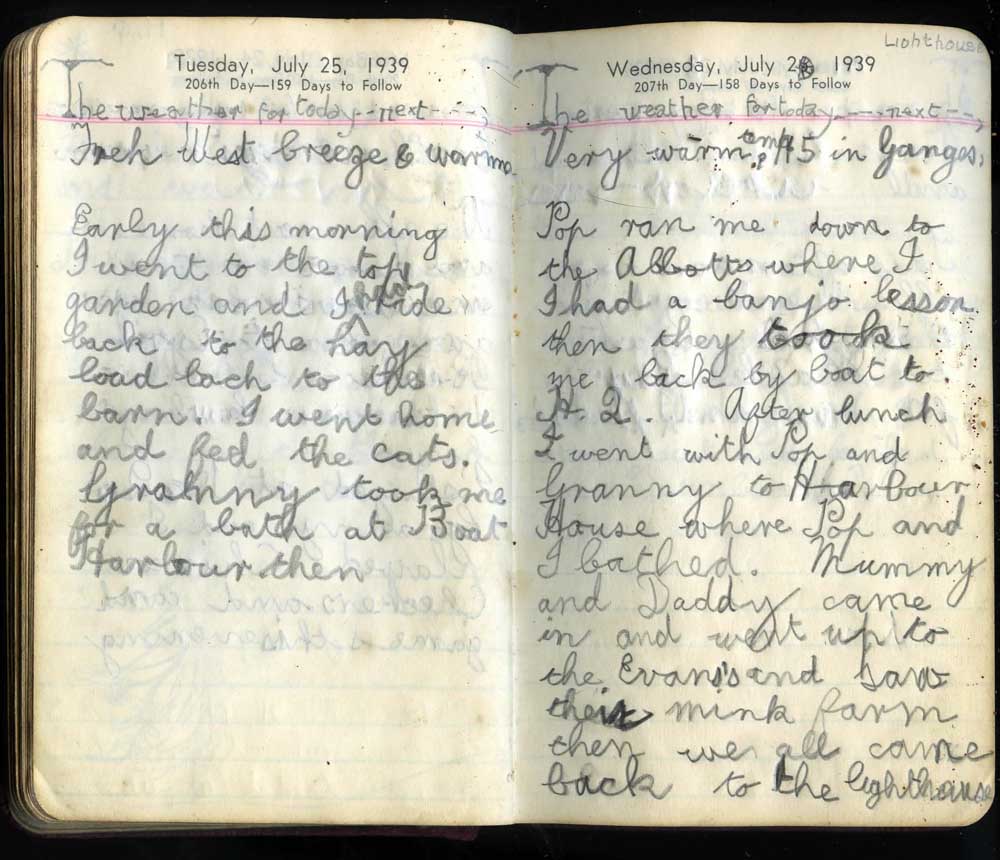 Tuesday, July 25, 1939
206th Day—159 Days to Follow
The weather for today---next---;
Freh West breeze & warm.
Early this morning
I went to the top
garden and I ride
back to the hay
load bach to the
barn. I went home
and fed the cats.
Granny took me
for a bath at Boat
Harbour then
Lighthouse
Wednesday, July 26, 1939
207th Day—158 Days to Follow
The weather for today----next-;
Very warm, temp. 115 in Ganges.
Pop ran me down to
the Abbotts where I
I had a banjo lesson
then they toook
me back by boat to.
H.Q. After lunch
I went with Pop and
Granny to Harbour
House where Pop and
I bathed. Mummy
and Daddy came
in and went up to
the Evans's and saw
their mink farm
then we all came
back to the lighthouse